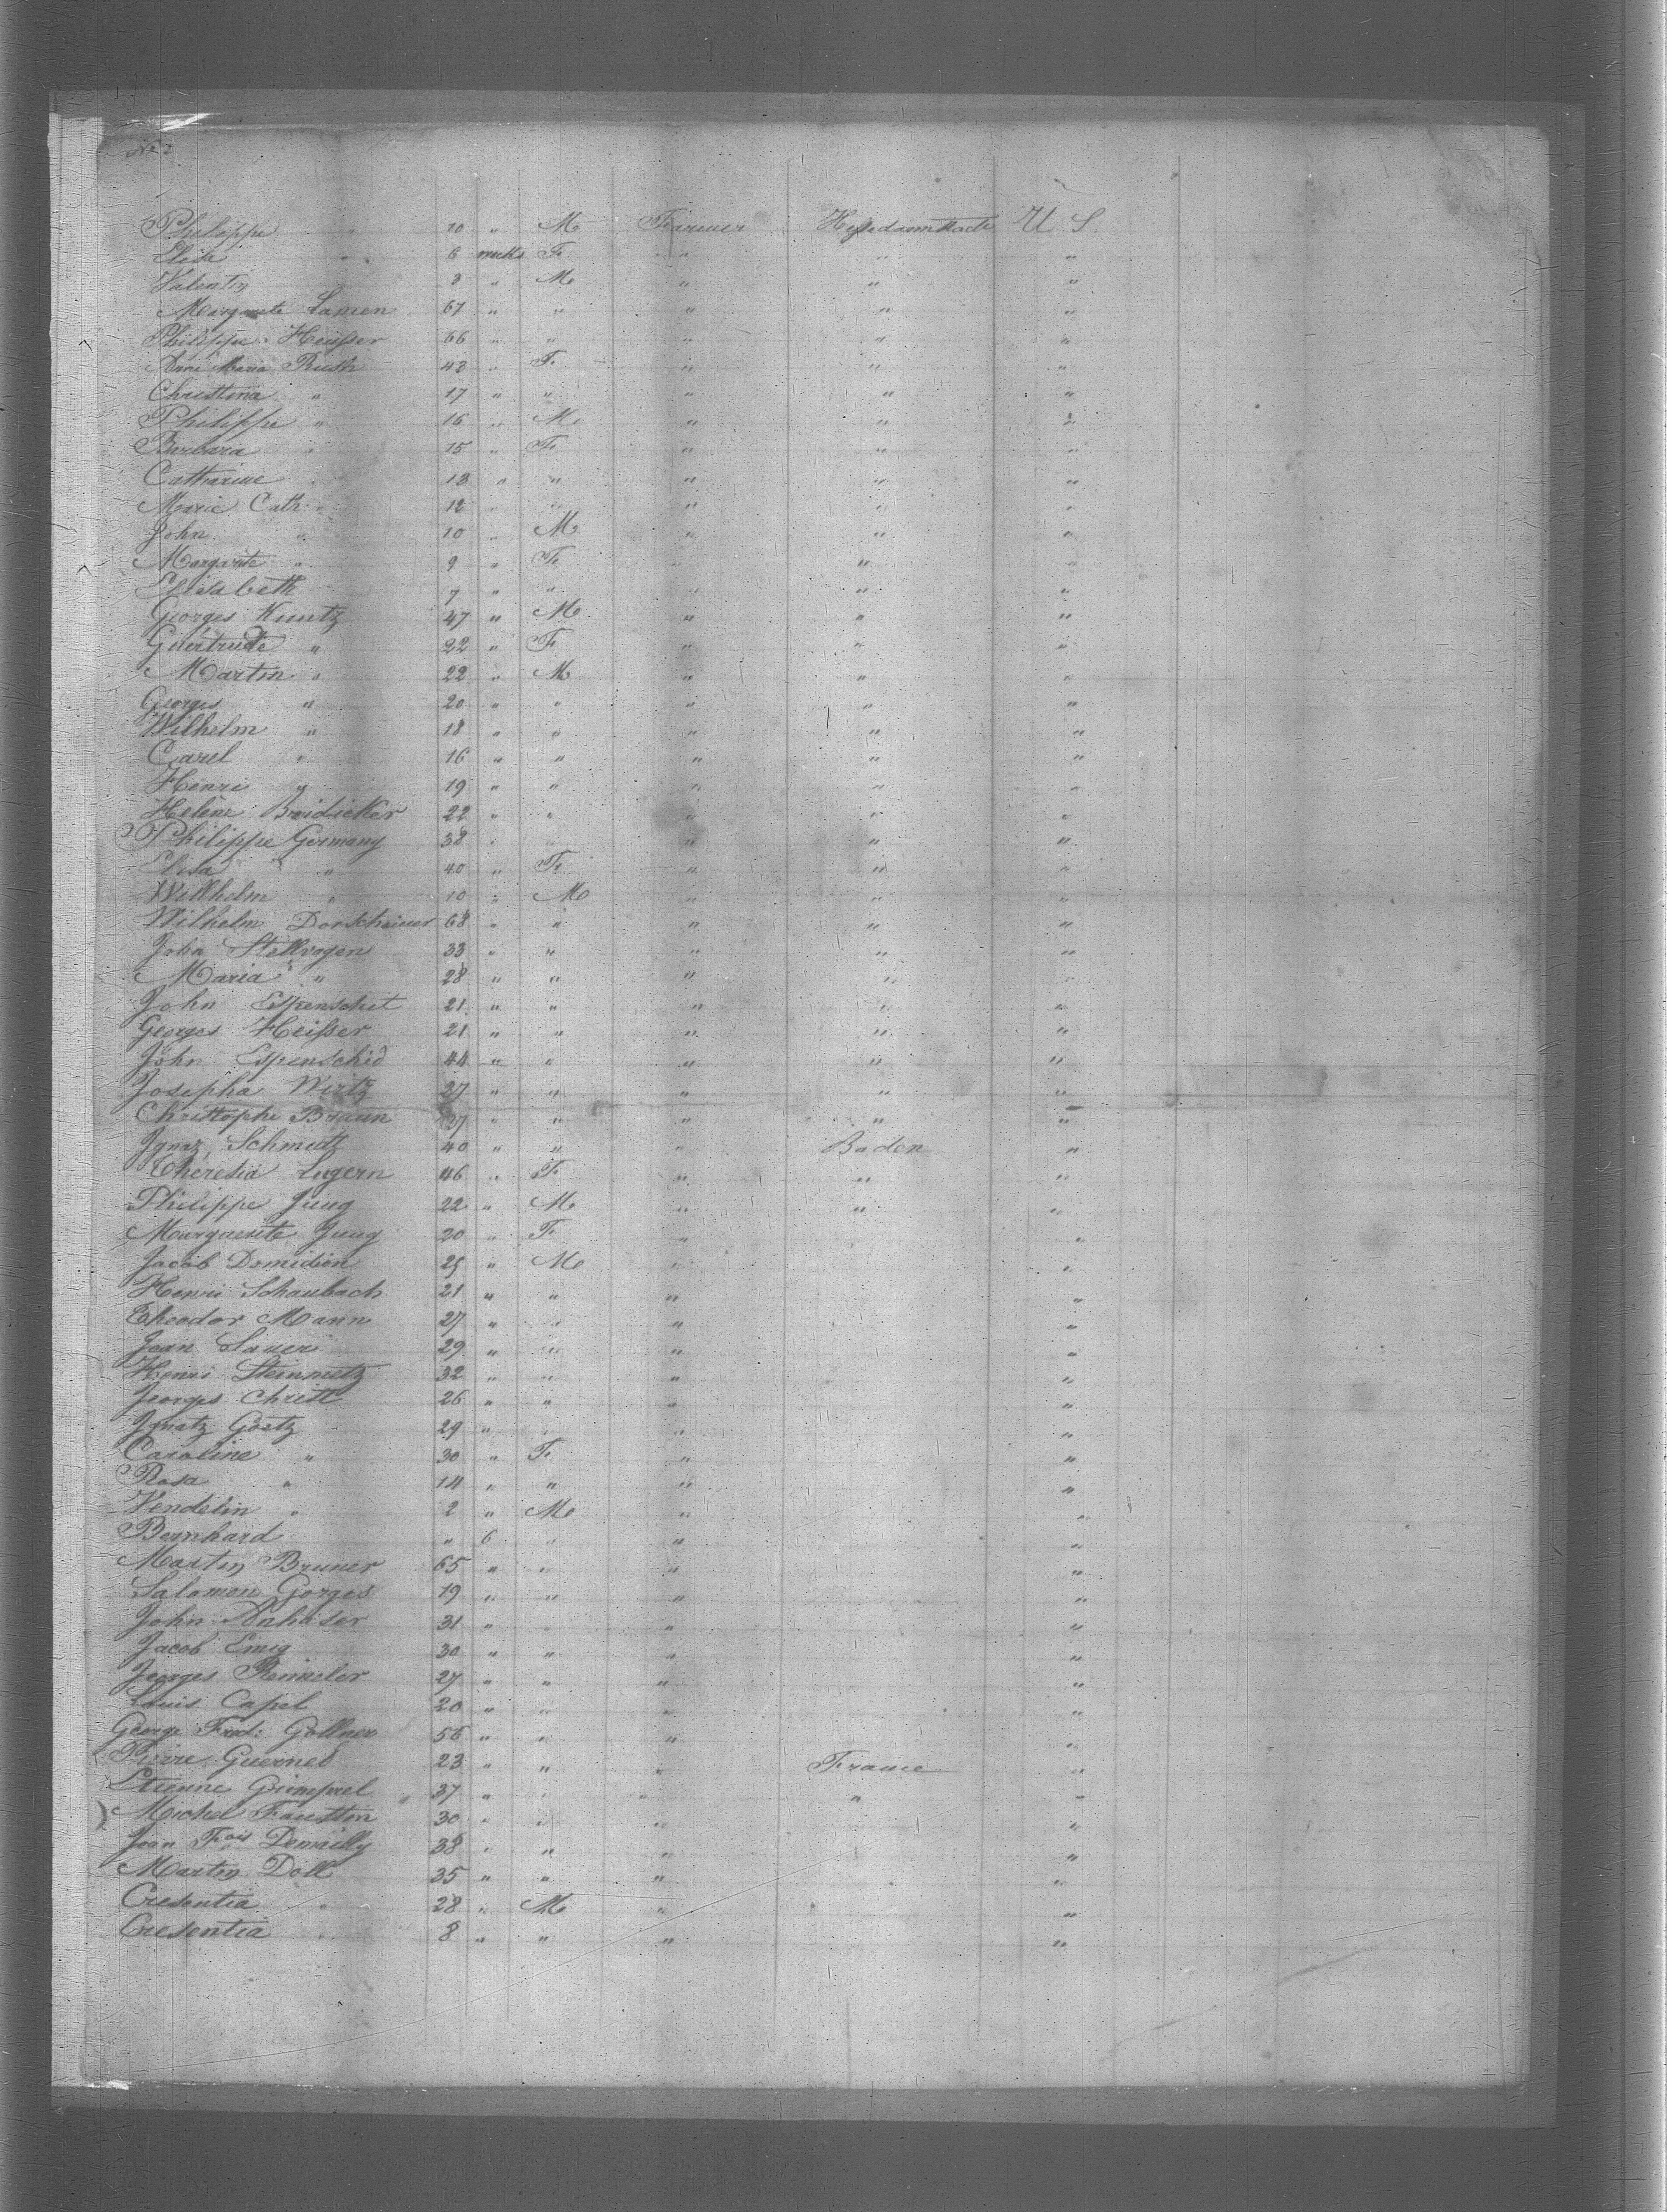 No 2
Philippe " 20 " M Farmer Hessedarmstadt U S.
Elisa " 6 weeks F " " "
Valentin 3 " M " " "
Margarete Lamen 67 " " " " "
Philippe Heußer 66 " " " " "
Anne Maria Rush 43 " F " " "
Christina " 17 " " " " "
Philippe " 16 " M " " "
Barbara " 15 " F " " "
Catharine " 13 " " " " "
Marie Cath: " 12 " " " " "
John " 10 " M " " "
Margarete " 9 " F " " "
Elisabeth 7 " " " " "
Georges Kuntz 47 " M " " "
Guertrude " 22 " F " " "
Martin " 22 " M " " "
Georges " 20 " " " " "
Wilhelm " 18 " " " " "
Carel " 16 " " " " "
Henri " 19 " " " " "
Helène Breidicker 22 " " " " "
Philippe Germany 38 " " " " "
Elisa " 40 " F " " "
Willhelm " 10 " M " " "
Wilhelm Dorscheimer 68 " " " " "
John Stellvagen 33 " " " " "
Maria " 28 " " " " "
John Espenschet 21 " " " " "
Georges Heißer 21 " " " " "
John Espenschid 44 " " " " "
Josepha Wirtz 27 " " " " "
Christophe Braun 37 " " " " "
Ignaz Schmidt 40 " " " Baden "
Theresia Lugern 46 " F " " "
Philippe Jung 22 " M " " "
Marguerite Jung 20 " F " "
Jacob Demidion 25 " M " "
Henri Schaubach 21 " " " "
Theodor Mann 27 " " " "
Jean Sauer 29 " " " "
Henri Steinmetz 32 " " " "
Georges Christ 26 " " " "
Ignatz Goetz 29 " " " "
Caroline " 30 " F " "
Rosa " 14 " " " "
Vendelin " 2 " M " "
Bernhard " 6 " " "
Martin Bruner 65 " " " "
Salomon Gorges 19 " " " "
John Anhaser 31 " " " "
Jacob Emig 30 " " " "
Georges Reimeler 27 " " " "
Louis Capel 20 " " " "
George Fred: Gollner 56 " " " "
Pierre Guerned 23 " " " France "
Etienne Grimprel 37 " " " " "
Michel Faustin 30 " " " "
Jean Fois Demailly 38 " " " "
Martin Doll 35 " " " "
Cresentia " 28 " M " "
Cresentia " 8 " " " "